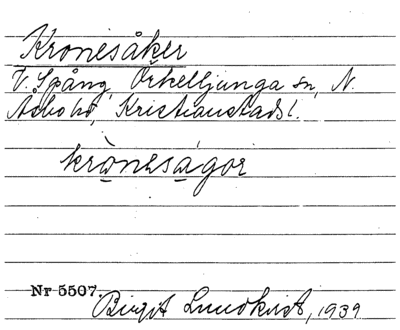 Kronesåker
V. Spång, Örkelljunga sn, N.
Åsbo hd, Kristianstads l.
kròneságor
Nr 5507. Birgit Lundkvist, 1939